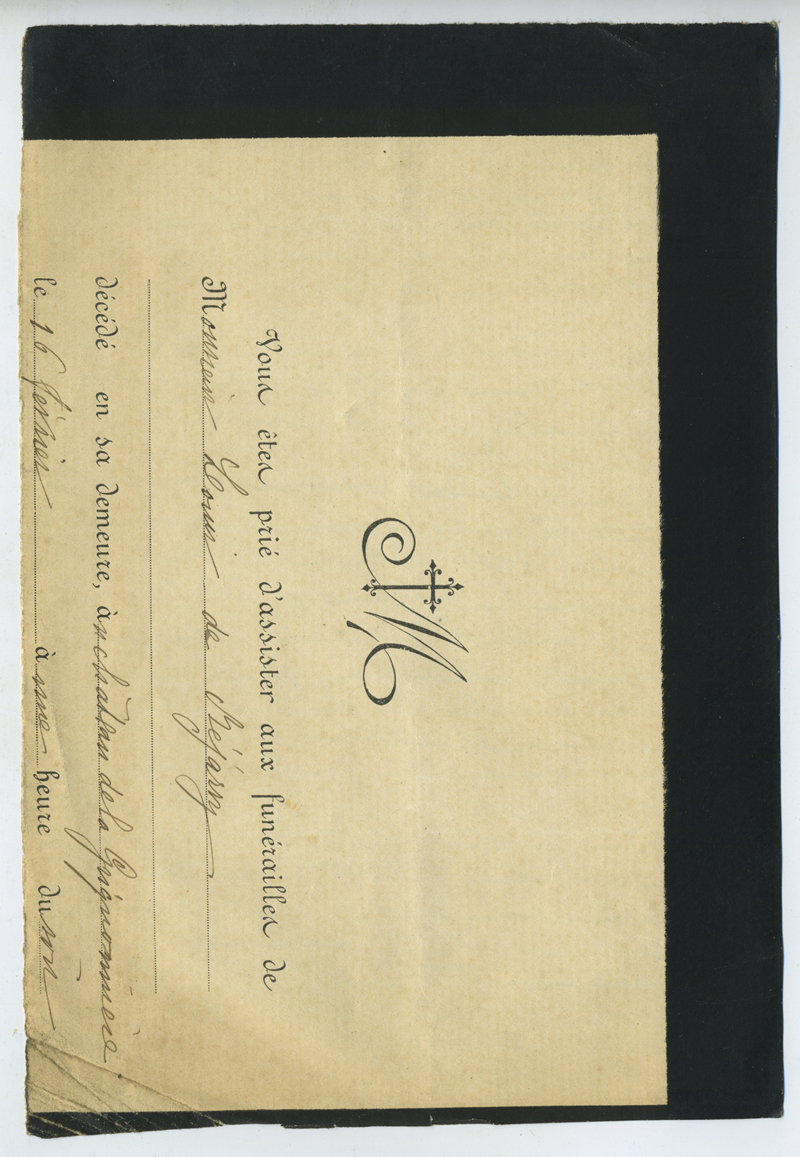 M
Vous êtes prié d'assister aux funérailles de
Monsieur Louis de Béjarry
décédé en sa demeure, à château de la Grignonnière
le 16 février à une heure du soir